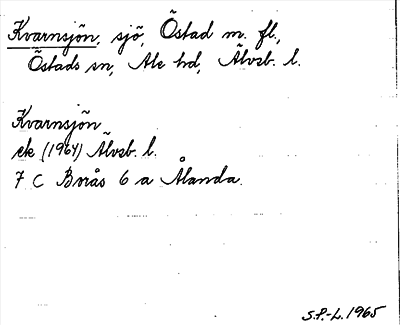 Kvarnsjön, sjö, Östad m. fl.,
Östads sn, Ale hd, Älvsb. l.
Kvarnsjön
ek (1964) Älvsb. l.
7 C Borås 6 a Ålanda
S.P.-L. 1965